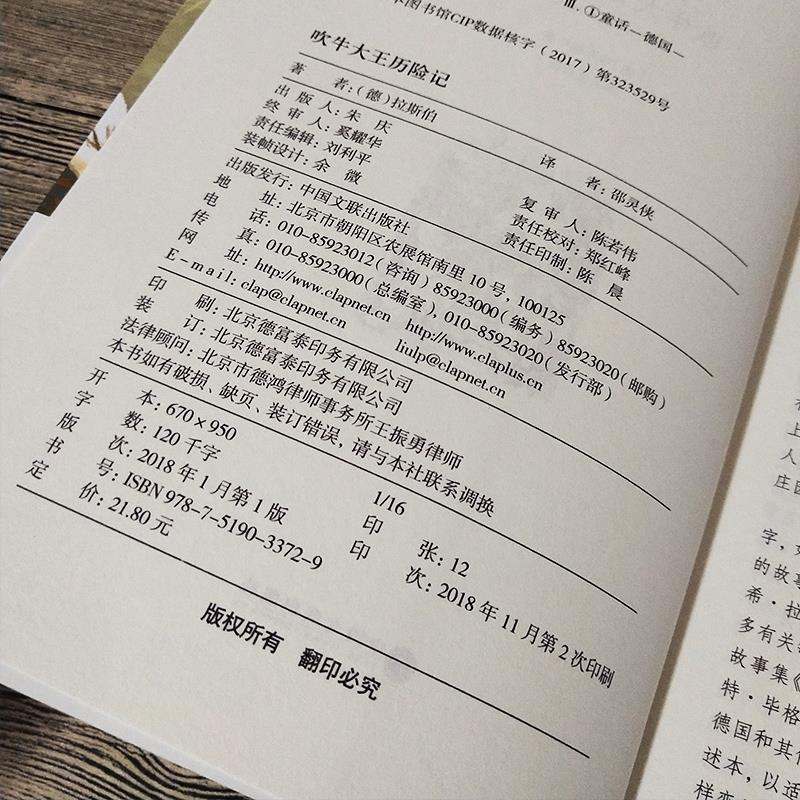 Ⅲ. ①童话—德国—
图书馆CIP数据核字（2017）第323529号
吹牛大王历险记
著 者：（德）拉斯伯 译 者：邵灵侠
出 版 人：朱 庆
终 审 人：奚耀华 复 审 人：陈若伟
责任编辑：刘利平 责任校对：郑红峰
装帧设计：余 微 责任印制：陈 晨
出版发行：中国文联出版社
地 址：北京市朝阳区农展馆南里 10 号，100125
电 话：010-85923012（咨询）85923000（编务）85923020（邮购）
传 真：010-85923000（总编室），010-85923020（发行部）
网 址：http://www.clapnet.cn http://www.claplus.cn
E-mail：clap@clapnet.cn liulp@clapnet.cn
印 刷：北京德富泰印务有限公司
装 订：北京德富泰印务有限公司
法律顾问：北京市德鸿律师事务所王振勇律师
本书如有破损、缺页、装订错误，请与本社联系调换
开 本：670×950 1/16
字 数：120 千字 印 张：12
版 次：2018 年 1 月第 1 版 印 次：2018 年 11 月第 2 次印刷
书 号：ISBN 978-7-5190-3372-9
定 价：21.80 元
版权所有 翻印必究
上
人
庄
字，
的故事
希·拉
多有关
故事集《
特·毕格
德国和其他
述本，以适
样变